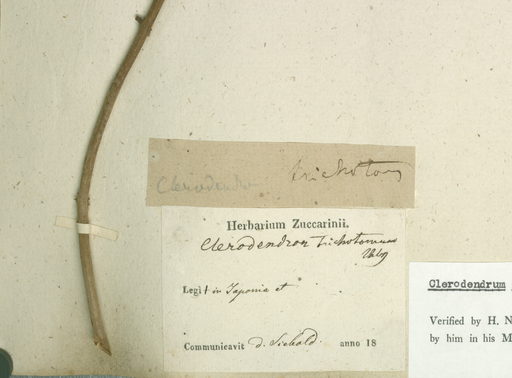 Clerodendron trichotom
Herbarium Zuccarinii.
Clerodendron trichotomum
Thbg
Legit in Japonia et
Communicavit d. Siebold. anno 18
Clerodendrum
Verified by H. N
by him in his M